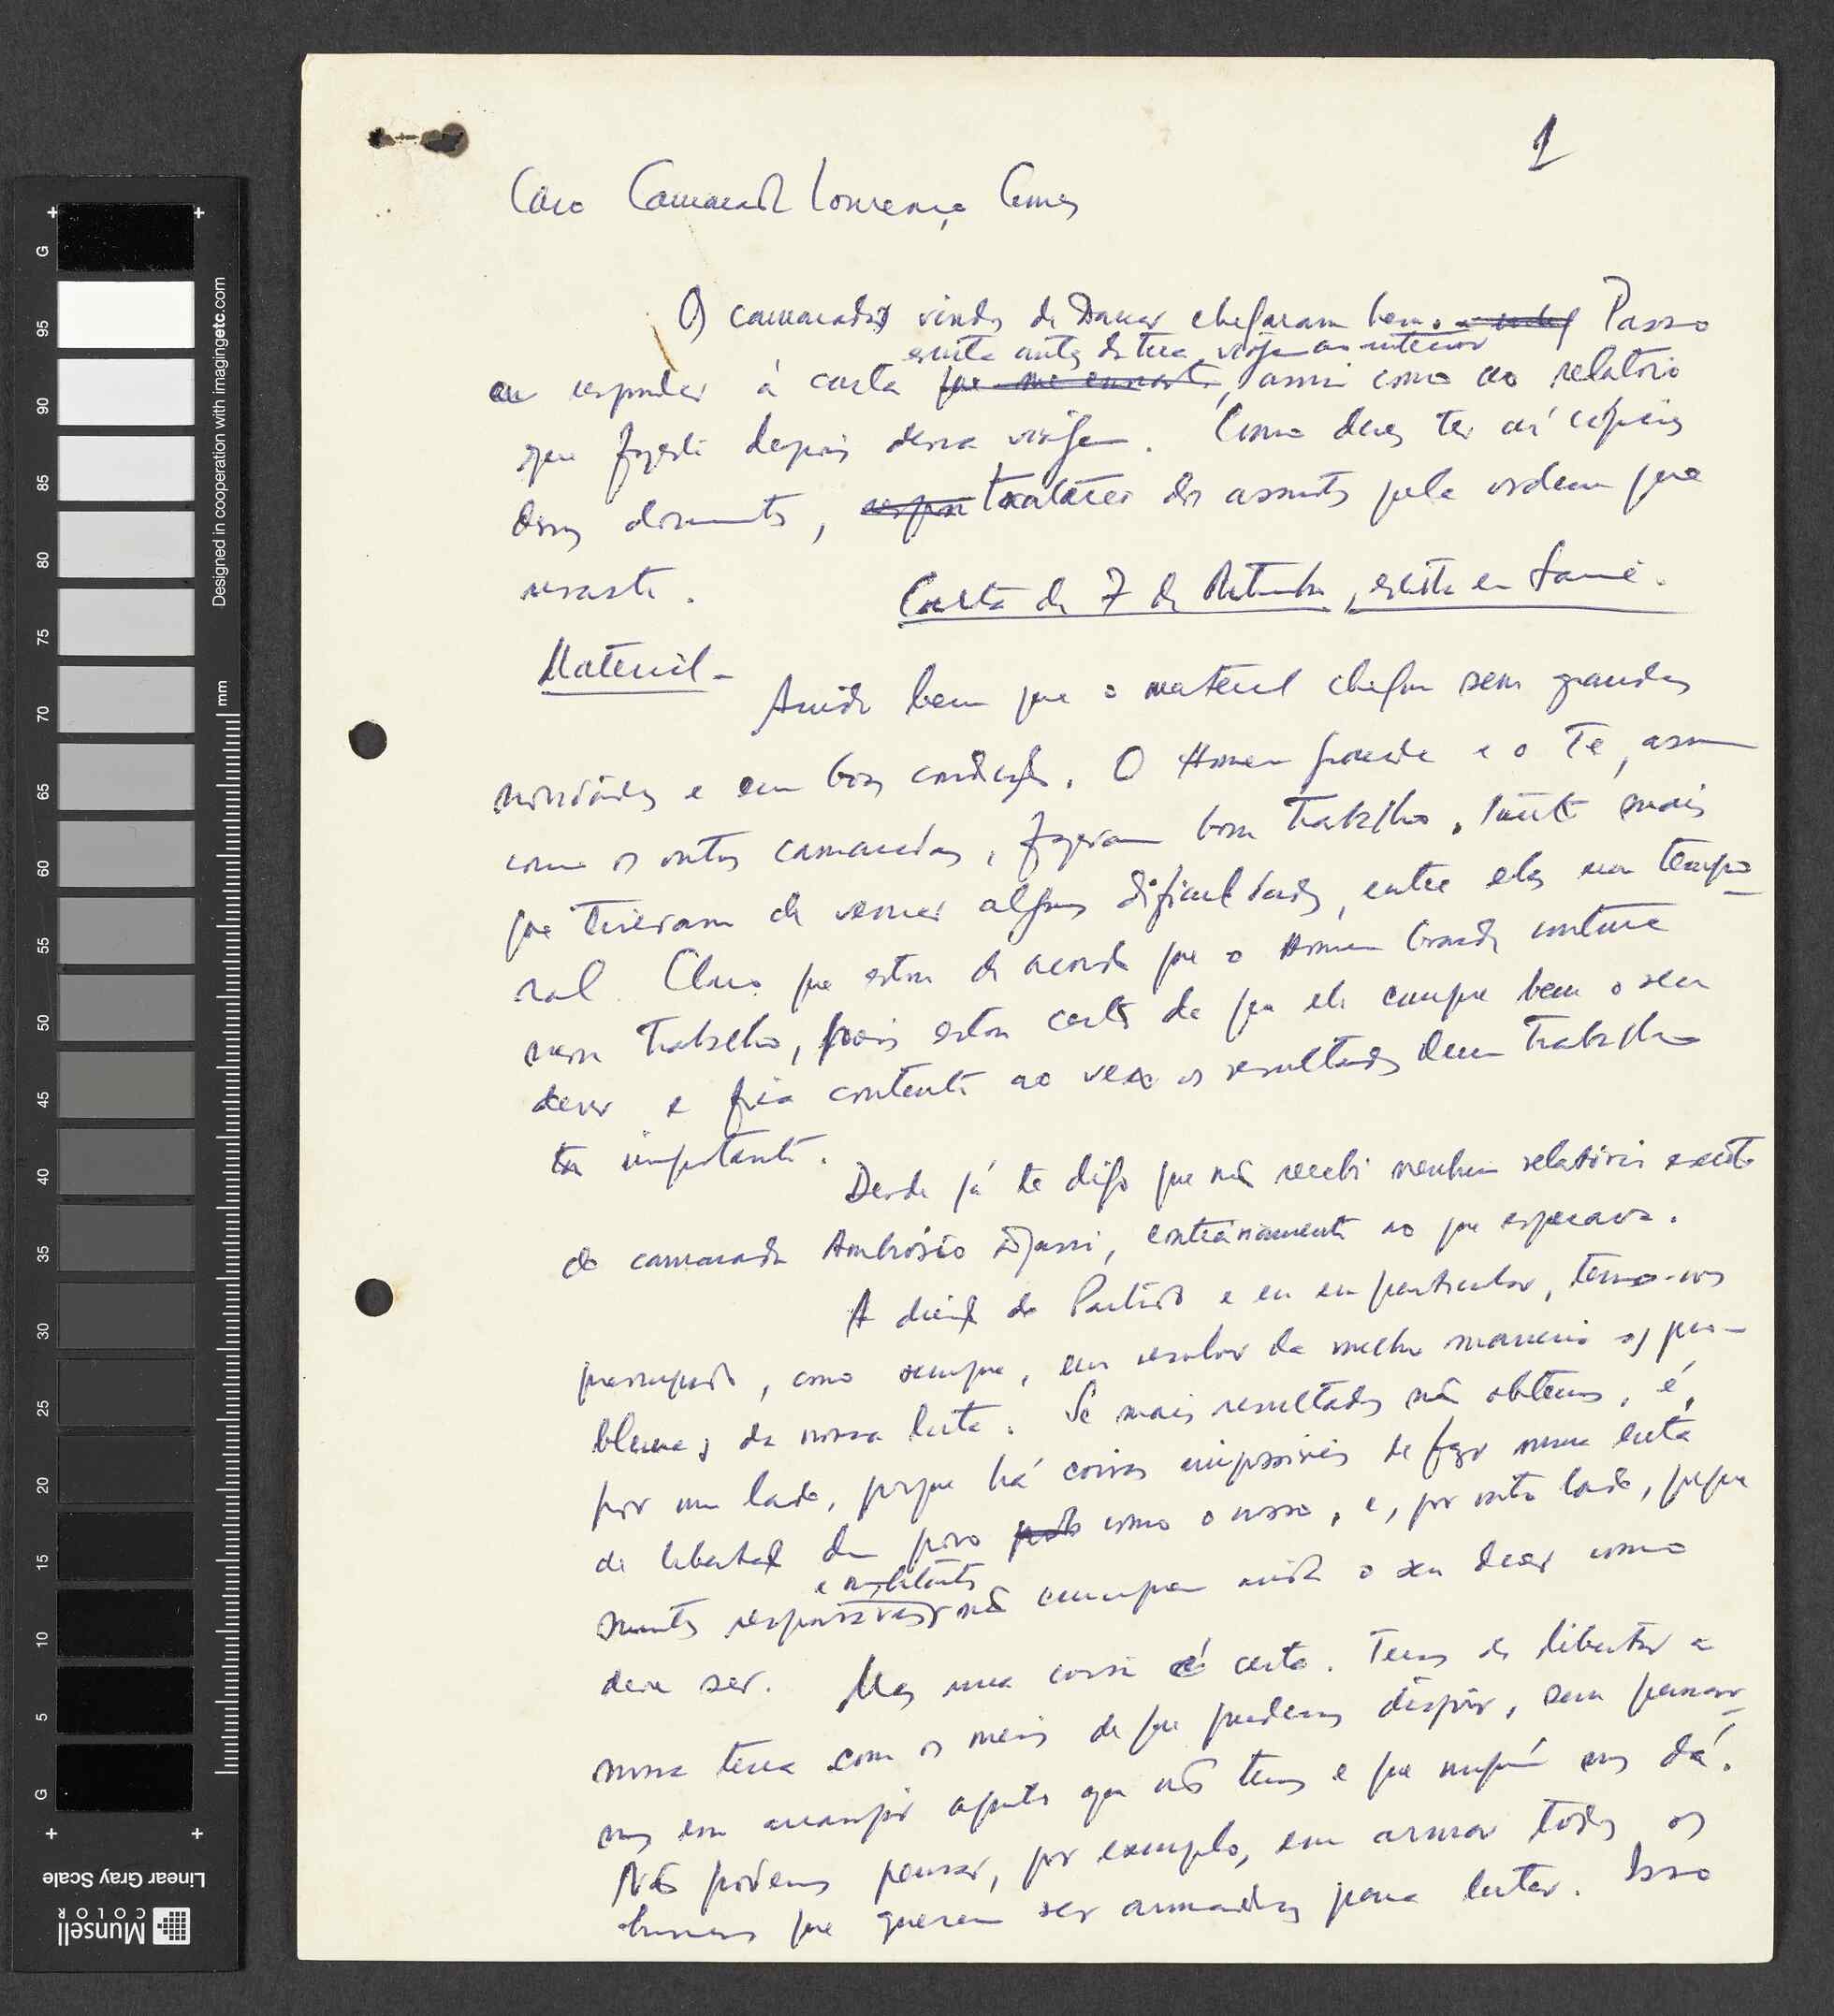 1
Caro Camarada Lourenço Gomes
Os camaradas vindos de Dakar chegaram bem. Passo
escrita antes da tua viagem ao interior
eu responder à carta que me enviaste, assim como ao relatório
que fizeste depois dessa viagem. Como deves ter aí cópias
desses documentos, respon tratarei dos assuntos pela ordem que
usaste.
Carta de 7 de Setembro, escrita em Samé.
Material -
Ainda bem que o material chegou sem grandes
novidades e em boas condições. O Homem Grande e o Té, assim
como os outros camaradas, fizeram bom trabalho, tanto mais
que tiveram de vencer algumas dificuldades, entre elas um tempo-
ral. Claro que estou de acordo que o Homem Grande continue
nesse trabalho, pois estou certo de que ele cumpre bem o seu
dever e fica contente ao ver os resultados dum trabalho
tão importante.
Desde já te digo que não recebi nenhum relatório escrito
do camarada Ambrósio Djassi, contrariamente ao que esperava.
A direcção do Partido e eu em particular, temo-nos
preocupado, como sempre, em resolver da melhor maneira os pro-
blemas da nossa luta. Se mais resultados não obtemos, é,
por um lado, porque há coisas impossíveis de fazer numa luta
de libertação dum povo como o nosso, e, por outro lado, porque
e militantes
muitos responsáveis não cumprem ainda o seu dever como
deve ser. Mas uma coisa é certa. Temos de libertar a
nossa terra com os meios de que podemos dispôr, sem pensar-
mos em avançar aquilo que não temos e que ninguém nos dá.
Não podemos pensar, por exemplo, em armar todos os
homens que querem ser armados para lutar. Isso
Designed in cooperation with imagingetc.com
mm
G
95
90
85
80
75
70
65
60
55
50
45
40
35
30
25
20
15
10
5
G
Linear Gray Scale
Munsell
COLOR